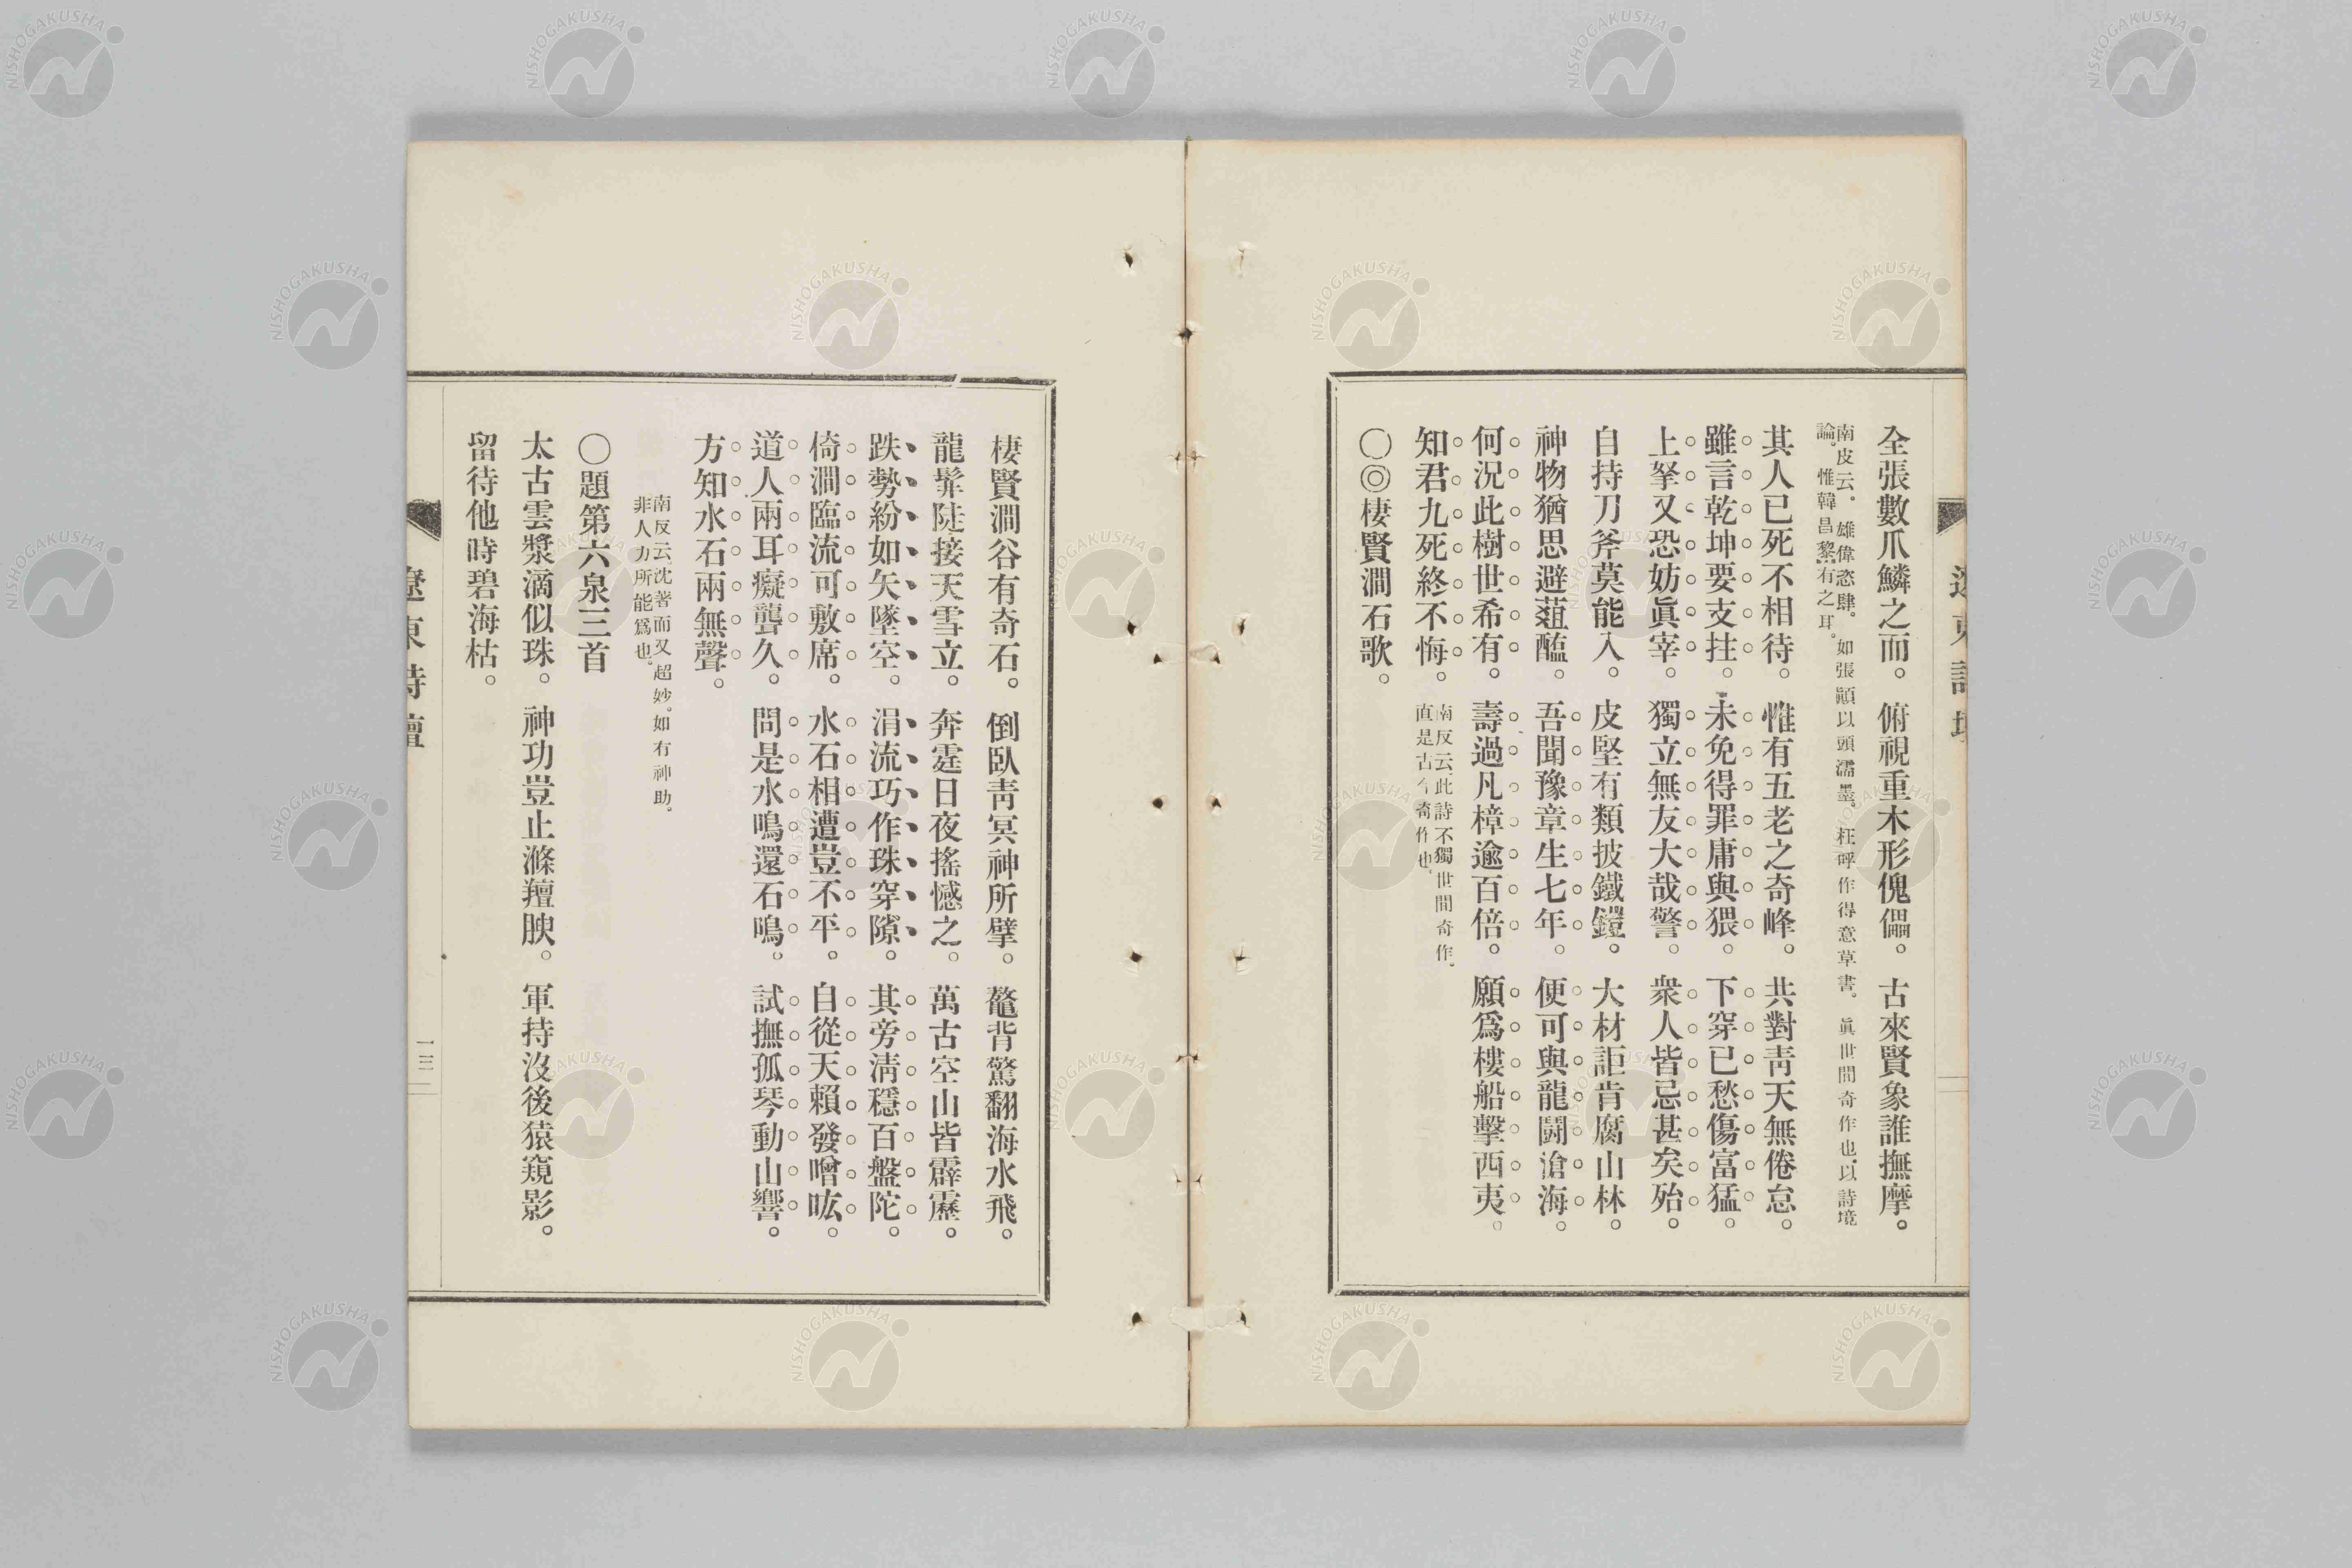 全張數爪鱗之而。俯視重木形傀儡。古來賢象誰撫摩。
南皮云。雄偉恣肆。如張顚以頭濡墨。枉呼作得意草書。眞世間奇作也以詩境
論。惟韓昌黎有之耳。
其人已死不相待。惟有五老之奇峰。共對靑天無倦怠。
雖言乾坤要支拄。未免得罪庸與猥。下穿已愁傷富猛。
上拏又恐妨眞宰。獨立無友大哉警。衆人皆忌甚矣殆。
自持刀斧莫能入。皮堅有類披鐵鎧。大材詎肯腐山林。
神物猶思避葅醢。吾聞豫章生七年。便可與龍鬪滄海。
何況此樹世希有。壽過凡樟逾百倍。願爲樓船擊西夷。
知君九死終不悔。
南反云此詩不獨世間奇作。
直是古今奇作也。
〇◎棲賢澗石歌。
棲賢澗谷有奇石。倒臥靑冥神所擘。鼇背驚翻海水飛。
龍髴陡接天雪立。奔霆日夜搖憾之。萬古空山皆霹靂。
跌勢紛如矢墜空。涓流巧作珠穿隙。其旁淸穩百盤陀。
倚澗臨流可敷席。水石相遭豈不平。自從天賴發噌吰。
道人兩耳癡聾久。問是水鳴還石鳴。試撫孤琴動山響。
方知水石兩無聲。
南反云沈著而又超妙。如有神助。
非人力所能爲也。
〇題第六泉三首
太古雲漿滴似珠。神功豈止滌羶腴。軍持沒後猿窺影。
留待他時碧海枯。
遼東詩壇
一三
NISHOGAKUSHA